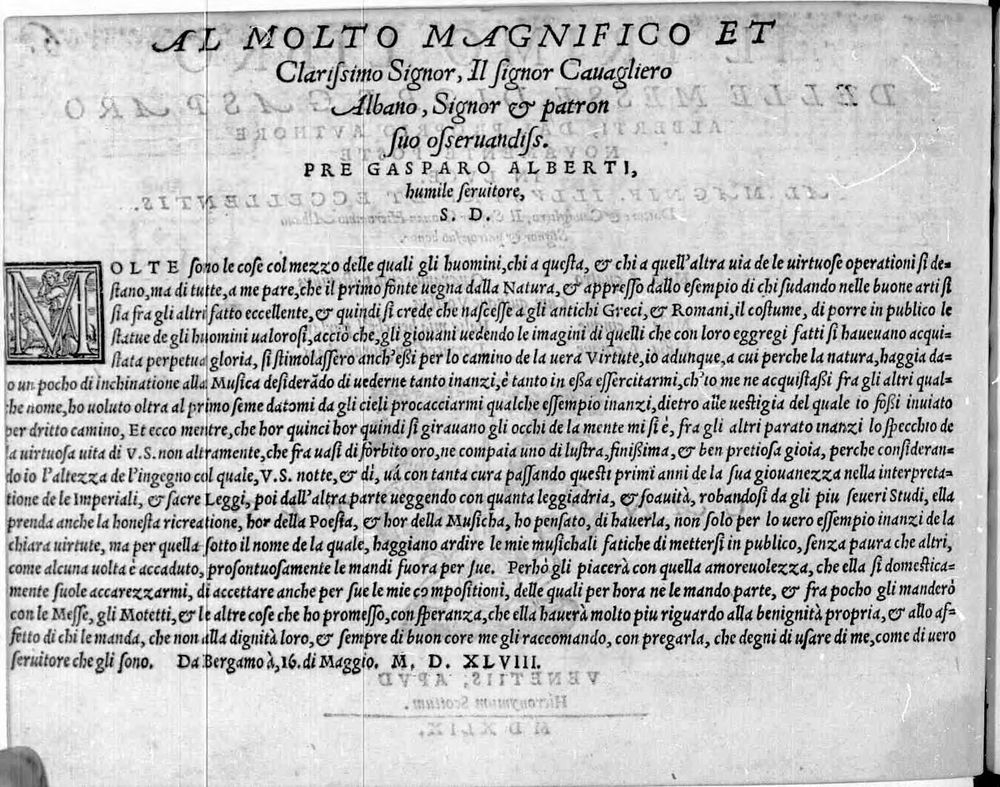 AL MOLTO MAGNIFICO ET
Clarissimo Signor, Il signor Cauagliero
Albano, Signor & patron
suo osseruandiss.
PRE GASPARO ALBERTI,
humile seruitore,
S. D.
MOLTE sono le cose col mezzo delle quali gli huomini, chi a questa, & chi a quell'altra uia de le uirtuose operationi si de-
stano, ma di tutte, a me pare, che il primo fonte uegna dalla Natura, & appresso dallo esempio di chi sudando nelle buone arti si
sia fra gli altri fatto eccellente, & quindi si crede che nascesse a gli antichi Greci, & Romani, il costume, di porre in publico le
statue de gli huomini ualorosi, acciò che, gli giouani uedendo le imagini di quelli che con loro eggregi fatti si haueuano acqui-
stata perpetua gloria, si stimolassero anch'essi per lo camino de la uera Virtute, io adunque, a cui perche la natura, haggia da-
o un pocho di inchinatione alla Musica desiderādo di uederne tanto inanzi, è tanto in essa essercitarmi, ch'io me ne acquistassi fra gli altri qual-
he nome, ho uoluto oltra al primo seme datomi da gli cieli procacciarmi qualche essempio inanzi, dietro alle uestigia del quale io fossi inuiato
per dritto camino, Et ecco mentre, che hor quinci hor quindi si girauano gli occhi de la mente mi si è, fra gli altri parato inanzi lo specchio de
la uirtuosa uita di V.S. non altramente, che fra uasi di forbito oro, ne compaia uno di lustra, finissima, & ben pretiosa gioia, perche consideran-
do io l'altezza de l'ingegno col quale, V.S. notte, & dì, uà con tanta cura passando questi primi anni de la sua giouanezza nella interpreta-
tione de le Imperiali, & sacre Leggi, poi dall'altra parte ueggendo con quanta leggiadria, & soauità, robandosi da gli piu seueri Studi, ella
prenda anche la honesta ricreatione, hor della Poesia, & hor della Musicha, ho pensato, di hauerla, non solo per lo uero essempio inanzi de la
chiara uirtute, ma per quella sotto il nome de la quale, haggiano ardire le mie musichali fatiche di mettersi in publico, senza paura che altri,
come alcuna uolta è accaduto, prosontuosamente le mandi fuora per sue. Perhò gli piacerà con quella amoreuolezza, che ella si domestica-
mente suole accarezzarmi, di accettare anche per sue le mie compositioni, delle quali per hora ne le mando parte, & fra pocho gli manderò
con le Messe, gli Motetti, & le altre cose che ho promesso, con speranza, che ella hauerà molto piu riguardo alla benignità propria, & allo af-
fetto di chi le manda, che non alla dignità loro, & sempre di buon core me gli raccomando, con pregarla, che degni di usare di me, come di uero
seruitore che gli sono. Da Bergamo à, 16. di Maggio. M. D. XLVIII.